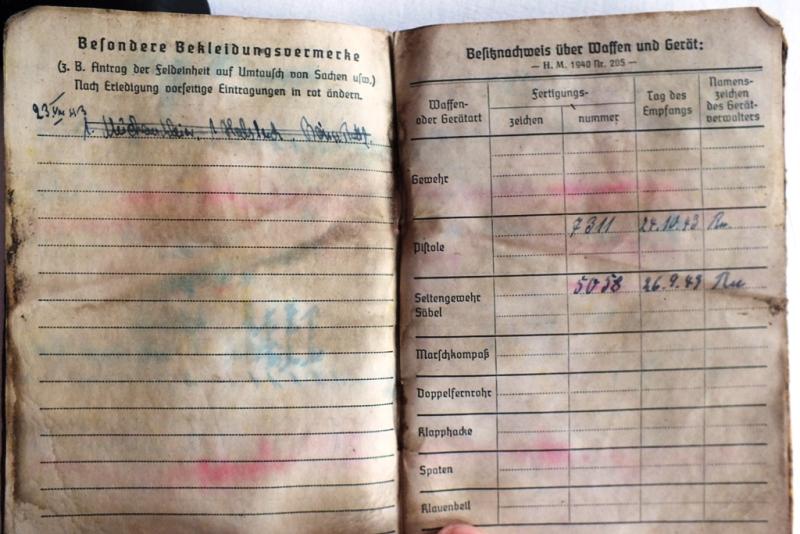 Besondere Bekleidungsvermerke
(z. B. Antrag der Feldeinheit auf Umtausch von Sachen usw.)
Nach Erledigung vorseitige Eintragungen in rot ändern.
Besitznachweis über Waffen und Gerät:
— H. M. 1940 Nr. 205 —
Waffen- oder Gerätart
Fertigungs-
zeichen
nummer
Tag des Empfangs
Namens- zeichen des Gerät- verwalters
Gewehr
Pistole 7311 24.10.43 Ru
Seitengewehr Säbel 5058 26.9.43 Ru
Marschkompaß
Doppelfernrohr
Klapphacke
Spaten
Klauenbeil